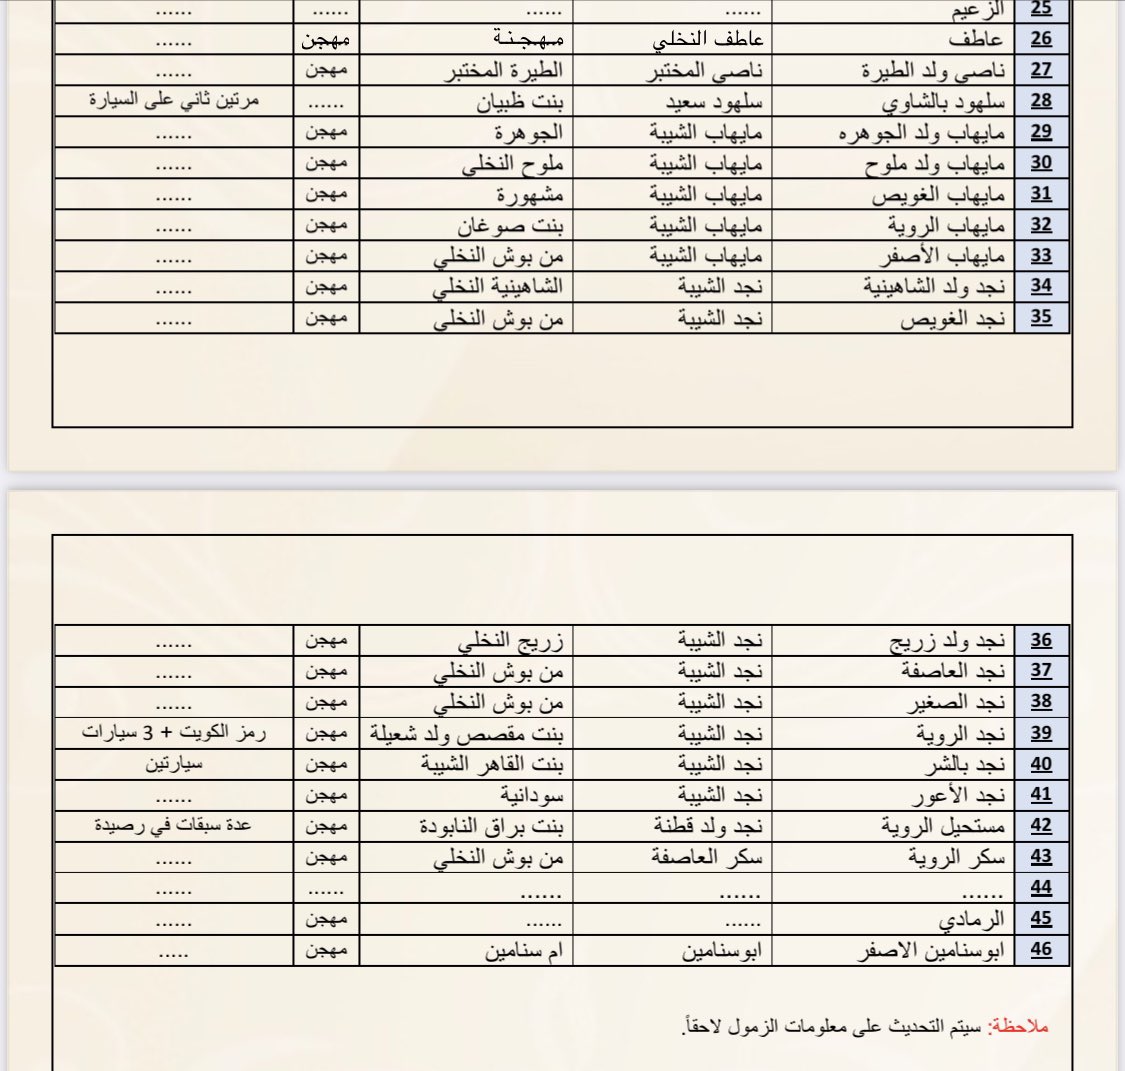 25 الزعيم ...... ...... ...... ......
26 عاطف عاطف النخلي مهجنة مهجن ......
27 ناصي ولد الطيرة ناصي المختبر الطيرة المختبر مهجن ......
28 سلهود بالشاوي سلهود سعيد بنت ظبيان ...... مرتين ثاني على السيارة
29 مايهاب ولد الجوهره مايهاب الشيبة الجوهرة مهجن ......
30 مايهاب ولد ملوح مايهاب الشيبة ملوح النخلي مهجن ......
31 مايهاب الغويص مايهاب الشيبة مشهورة مهجن ......
32 مايهاب الروية مايهاب الشيبة بنت صوغان مهجن ......
33 مايهاب الأصفر مايهاب الشيبة من بوش النخلي مهجن ......
34 نجد ولد الشاهينية نجد الشيبة الشاهينية النخلي مهجن ......
35 نجد الغويص نجد الشيبة من بوش النخلي مهجن ......
36 نجد ولد زريج نجد الشيبة زريج النخلي مهجن ......
37 نجد العاصفة نجد الشيبة من بوش النخلي مهجن ......
38 نجد الصغير نجد الشيبة من بوش النخلي مهجن ......
39 نجد الروية نجد الشيبة بنت مقصص ولد شعيلة مهجن رمز الكويت + 3 سيارات
40 نجد بالشر نجد الشيبة بنت القاهر الشيبة مهجن سيارتين
41 نجد الأعور نجد الشيبة سودانية مهجن ......
42 مستحيل الروية نجد ولد قطنة بنت براق النابودة مهجن عدة سبقات في رصيدة
43 سكر الروية سكر العاصفة من بوش النخلي مهجن ......
44 ...... ...... ...... ...... ......
45 الرمادي ...... ...... مهجن ......
46 ابوسنامين الاصفر ابوسنامين ام سنامين مهجن .....
ملاحظة: سيتم التحديث على معلومات الزمول لاحقاً.